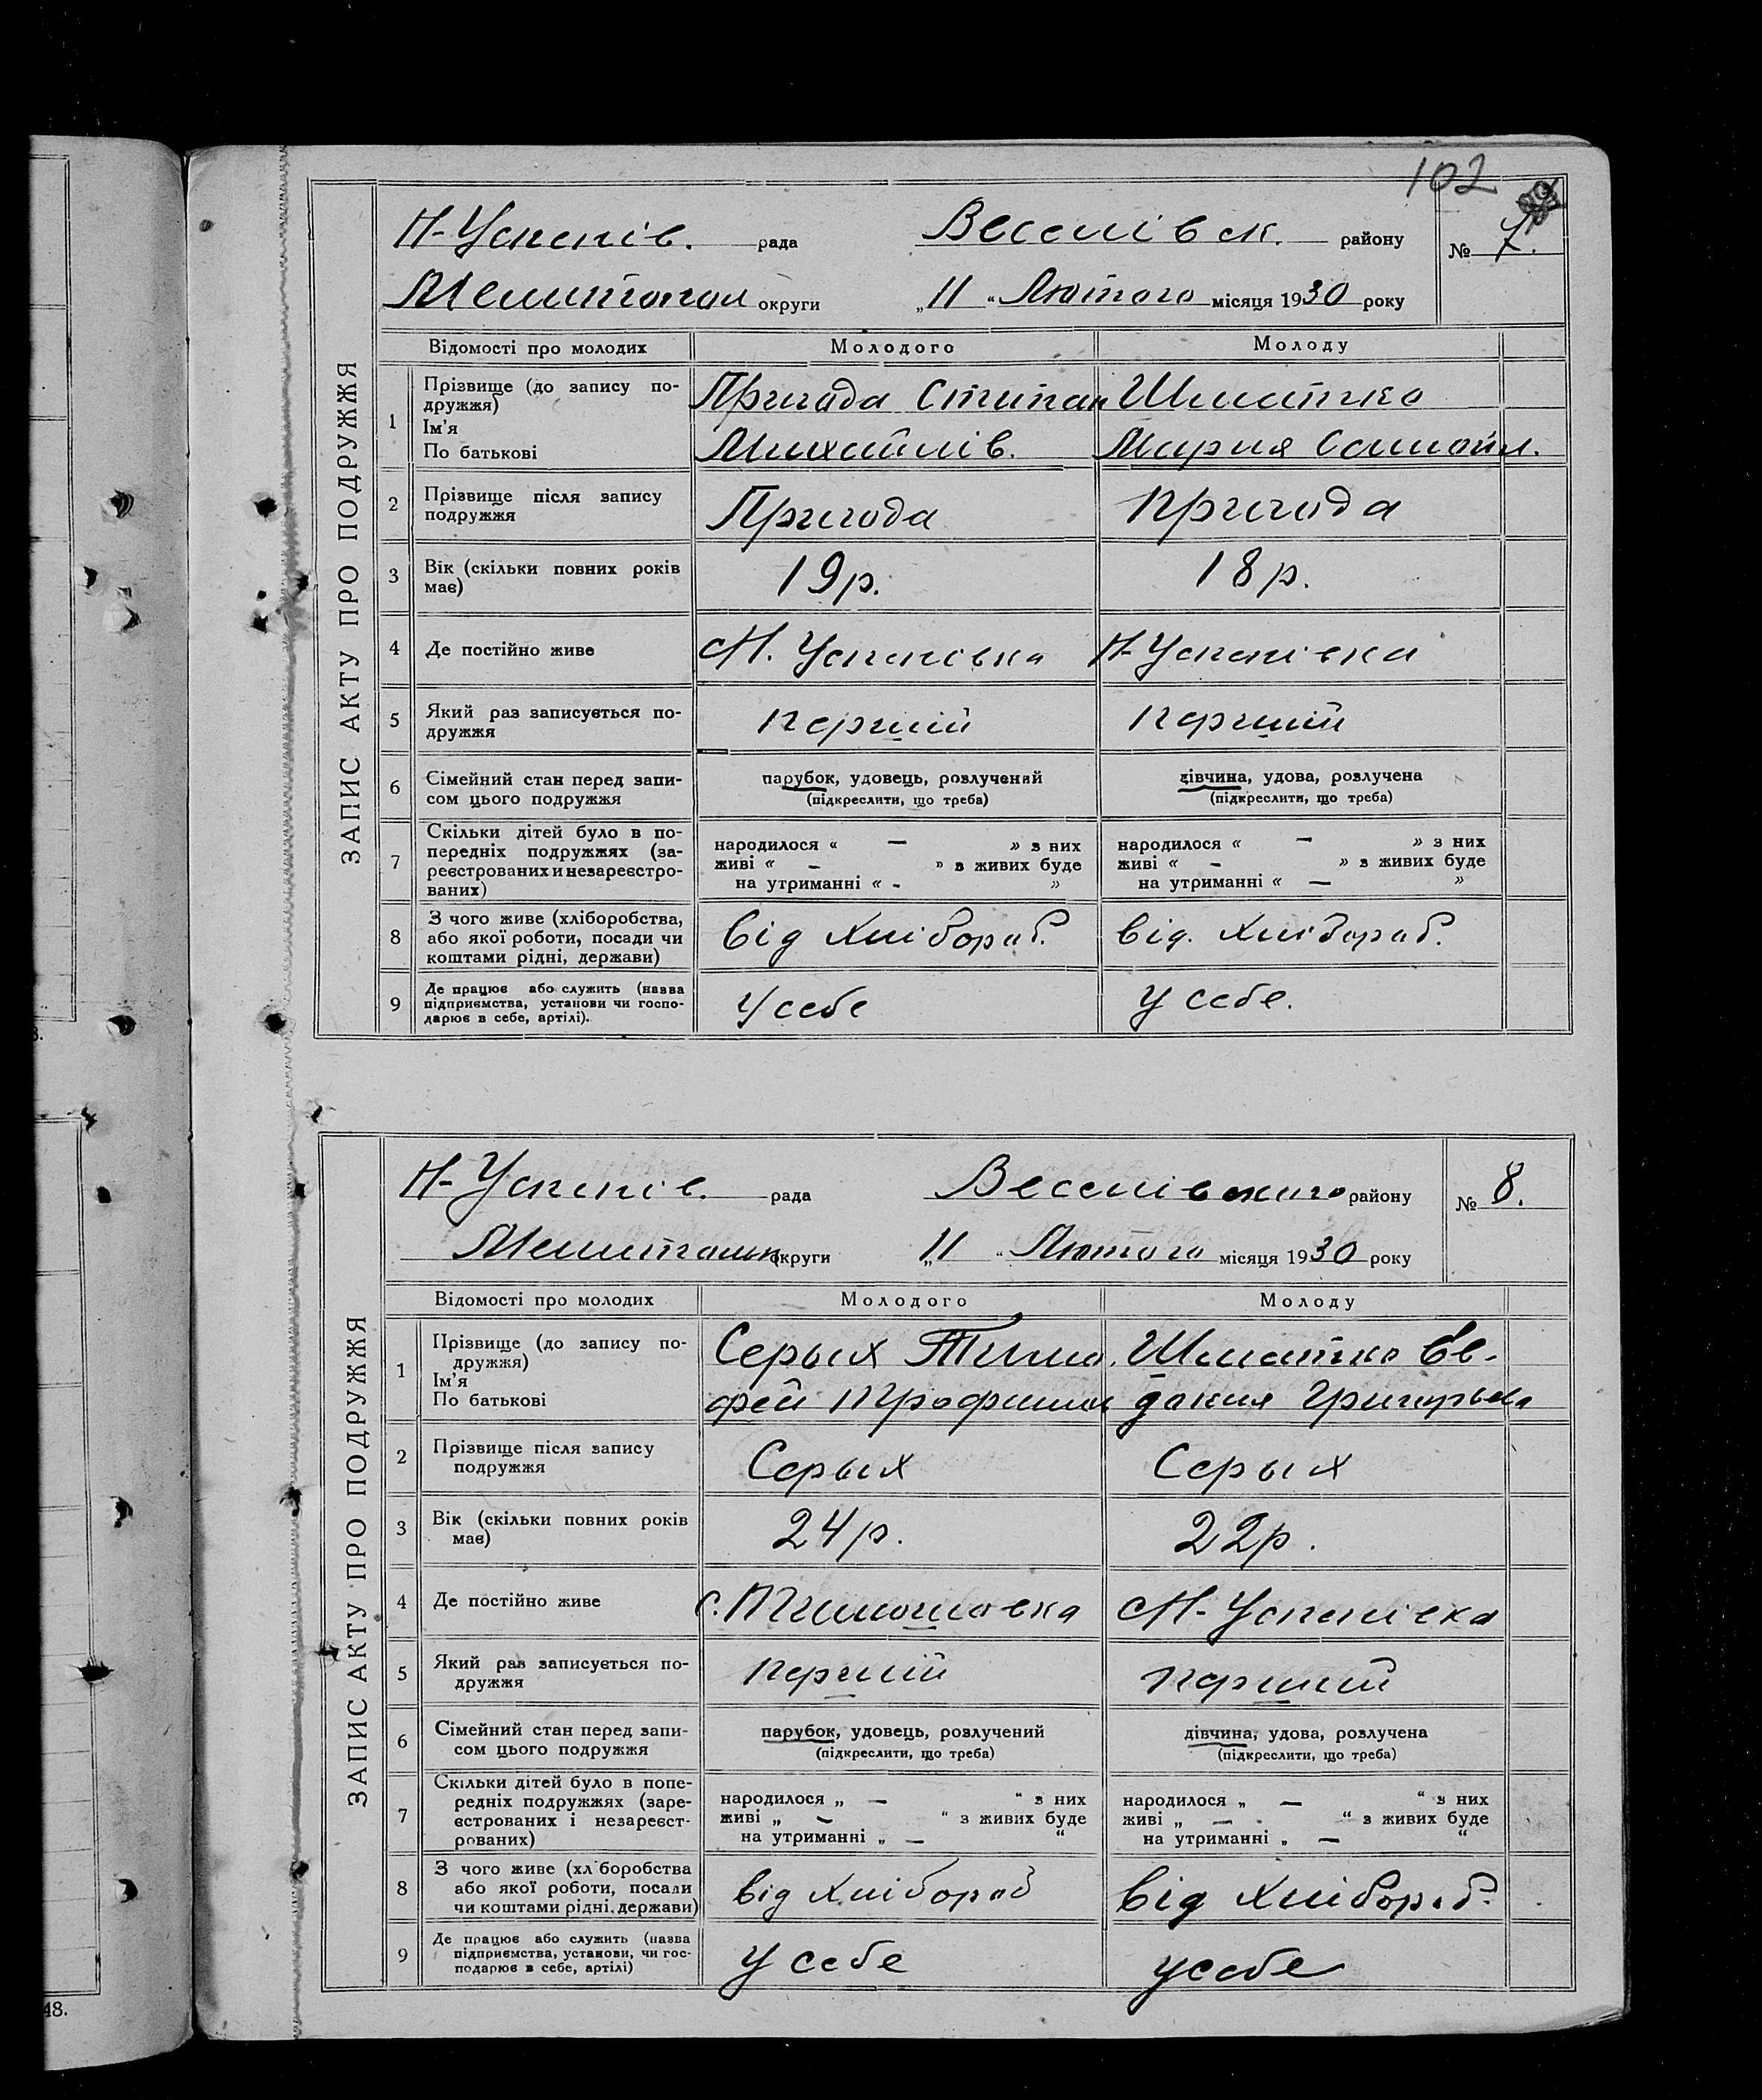 102
Н-Успенів. рада Веселівск. району № 7.
Мелитопол округи „11“ Лютого місяця 1930 року
ЗАПИС АКТУ ПРО ПОДРУЖЖЯ
Відомості про молодих Молодого Молоду
1 Прізвище (до запису по- Пригода Стипан Шматко
дружжя)
Ім'я
По батькові Михайлів. Мария Самойл.
2 Прізвище після запису Пригода Пригода
подружжя
3 Вік (скільки повних років 19 р. 18 р.
має)
4 Де постійно живе с Н. Успенівка Н-Успенівка
5 Який раз записується по- перший перший
дружжя
6 Сімейний стан перед запи- парубок, удовець, розлучений дівчина, удова, розлучена
сом цього подружжя (підкреслити, що треба) (підкреслити, що треба)
7 Скільки дітей було в по-
передніх подружжях (за- народилося « — » з них народилося « — » з них
реєстрованих и незареєстро- живі « — » з живих буде живі « — » з живих буде
ваних) на утриманні « - » на утриманні « — »
8 З чого живе (хліборобства,
або якої роботи, посади чи від хлібораб. від. хлібораб.
коштами рідні, держави)
9 Де працює або служить (назва
підприємства, установи чи госпо- у себе у себе.
дарює в себе, артілі).
Н-Успенів. рада Веселівского району № 8.
Мелитопол округи „11“ Лютого місяця 1930 року
ЗАПИС АКТУ ПРО ПОДРУЖЖЯ
Відомості про молодих Молодого Молоду
1 Прізвище (до запису по- Серых Тимо. Шматко Ев-
дружжя)
Ім'я
По батькові фей Трофимов докия Григорьевна
2 Прізвище після запису Серых Серых
подружжя
3 Вік (скільки повних років 24 р. 22 р.
має)
4 Де постійно живе с. Тимошовка с Н-Успенівка
5 Який раз записується по- перший перший
дружжя
6 Сімейний стан перед запи- парубок, удовець, розлучений дівчина, удова, розлучена
сом цього подружжя (підкреслити, що треба) (підкреслити, що треба)
7 Скільки дітей було в попе-
редніх подружжях (заре- народилося „ — “ з них народилося „ — “ з них
єстрованих і незареєст- живі „ — “ з живих буде живі „ — “ з живих буде
рованих) на утриманні „ — “ на утриманні „ — “
8 З чого живе (хл боробства
або якої роботи, посади від хлібораб від хлібораб.
чи коштами рідні, держави)
9 Де працює або служить (назва
підприємства, установи, чи гос- у себе у себе
подарює в себе, артілі)
48.